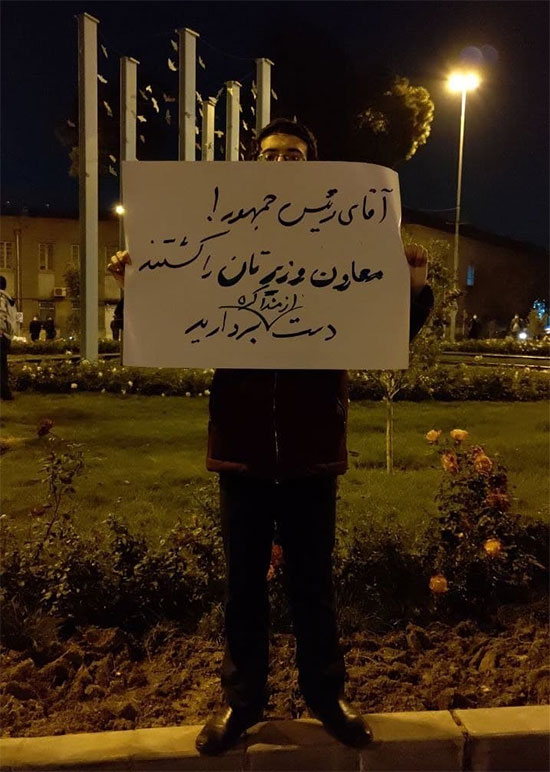 آقای رئیس جمهور!
معاون وزیرتان را کشتند
از مذاکره
دست بردارید